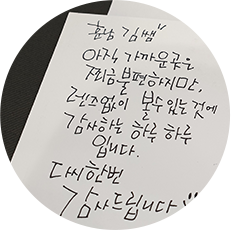 훈남 김쌤
아직 가까운곳은
찌금불편하지만,
렌즈없이 볼수있는 것에
감사하는 하루 하루
입니다.
다시한번
감사드립니다